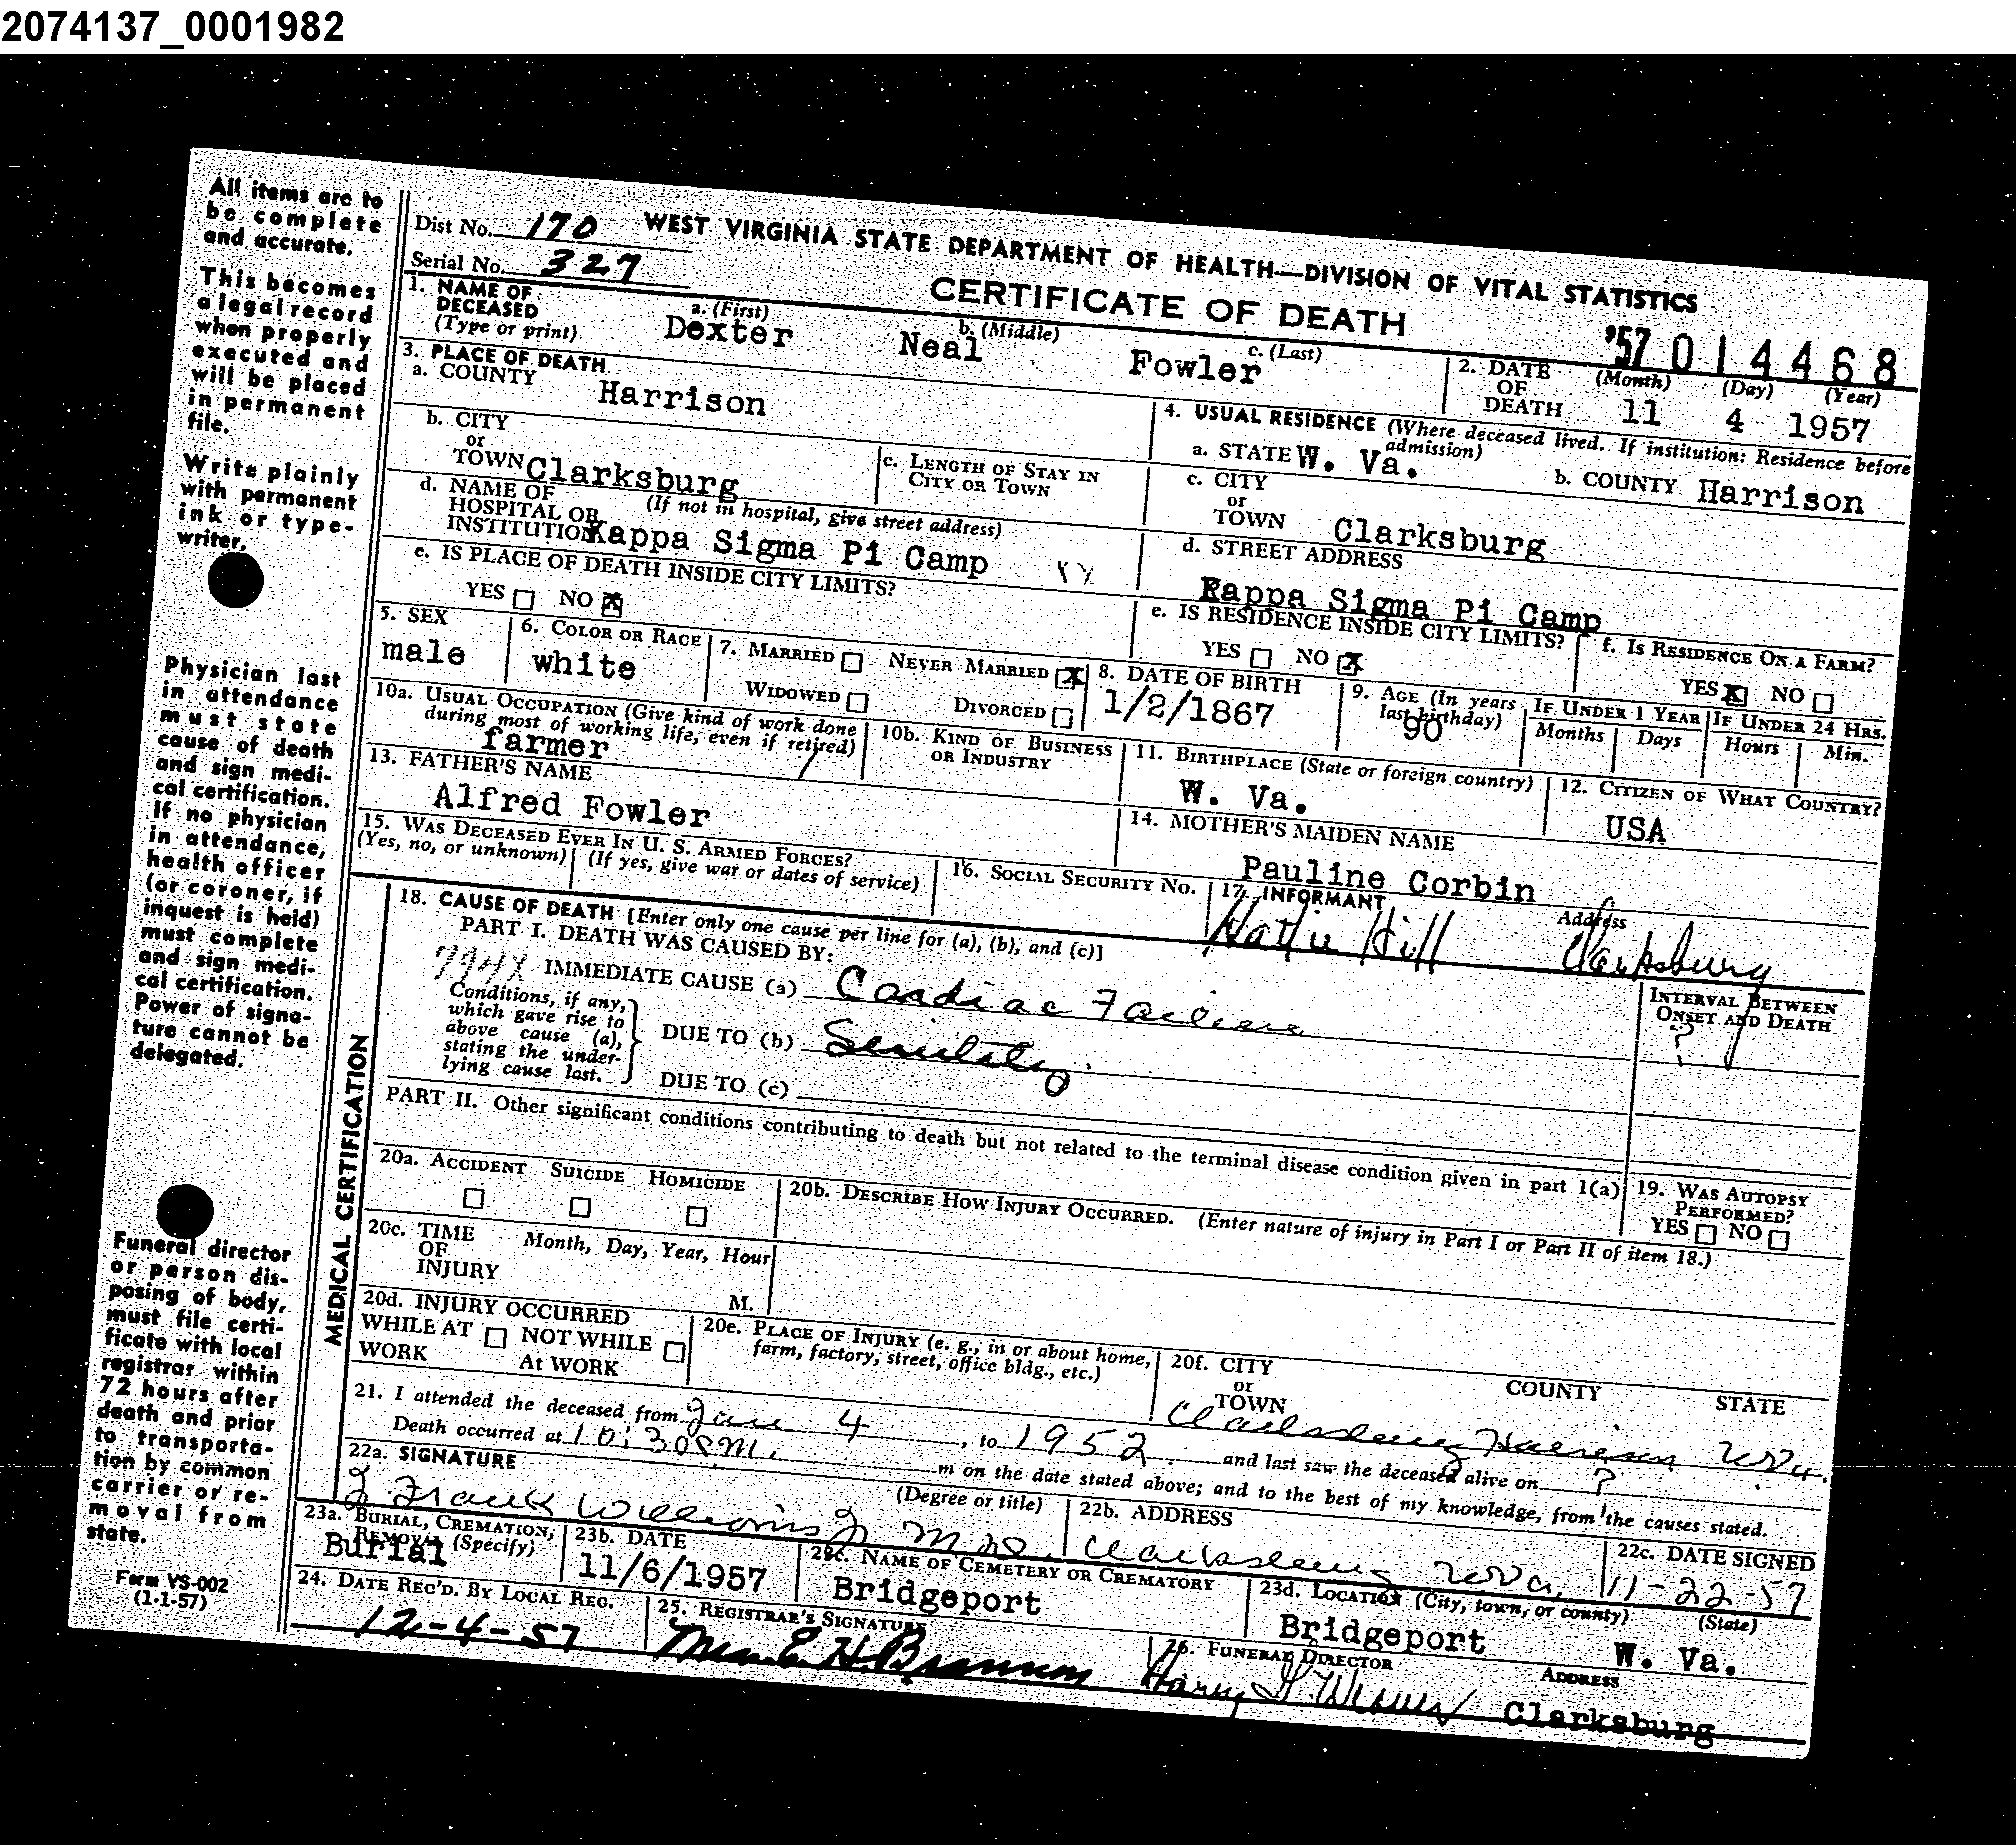 2074137_0001982
All items are to
be complete
and accurate.
This becomes
a legal record
when properly
executed and
will be placed
in permanent
file.
Write plainly
with permanent
ink or type-
writer.
Physician last
in attendance
must state
cause of death
and sign medi-
cal certification.
If no physician
in attendance,
health officer
(or coroner, if
inquest is held)
must complete
and sign medi-
cal certification.
Power of signa-
ture cannot be
delegated.
Funeral director
or person dis-
posing of body,
must file certi-
ficate with local
registrar within
72 hours after
death and prior
to transporta-
tion by common
carrier or re-
moval from
state.
Form VS-002
(1-1-57)
Dist No. 170 WEST VIRGINIA STATE DEPARTMENT OF HEALTH—DIVISION OF VITAL STATISTICS
Serial No. 327 CERTIFICATE OF DEATH
'57 014468
1. NAME OF DECEASED (Type or print) a. (First) Dexter b. (Middle) Neal c. (Last) Fowler
2. DATE OF DEATH (Month) 11 (Day) 4 (Year) 1957
3. PLACE OF DEATH
a. COUNTY Harrison
4. USUAL RESIDENCE (Where deceased lived. If institution: Residence before admission)
a. STATE W. Va. b. COUNTY Harrison
b. CITY or TOWN Clarksburg c. LENGTH OF STAY IN CITY OR TOWN
c. CITY or TOWN Clarksburg
d. NAME OF HOSPITAL OR INSTITUTION (If not in hospital, give street address) Kappa Sigma Pi Camp
d. STREET ADDRESS Kappa Sigma Pi Camp
e. IS PLACE OF DEATH INSIDE CITY LIMITS?
YES NO X
e. IS RESIDENCE INSIDE CITY LIMITS?
YES NO X
f. IS RESIDENCE ON A FARM?
YES X NO
5. SEX male
6. COLOR OR RACE white
7. MARRIED NEVER MARRIED X
WIDOWED DIVORCED
8. DATE OF BIRTH 1/2/1867
9. AGE (In years last birthday) 90
IF UNDER 1 YEAR Months Days
IF UNDER 24 HRS. Hours Min.
10a. USUAL OCCUPATION (Give kind of work done during most of working life, even if retired) farmer
10b. KIND OF BUSINESS OR INDUSTRY
11. BIRTHPLACE (State or foreign country) W. Va.
12. CITIZEN OF WHAT COUNTRY? USA
13. FATHER'S NAME Alfred Fowler
14. MOTHER'S MAIDEN NAME Pauline Corbin
15. WAS DECEASED EVER IN U. S. ARMED FORCES?
(Yes, no, or unknown) (If yes, give war or dates of service)
16. SOCIAL SECURITY NO.
17. INFORMANT Hattie Hill Address Clarksburg
MEDICAL CERTIFICATION
18. CAUSE OF DEATH [Enter only one cause per line for (a), (b), and (c)]
PART I. DEATH WAS CAUSED BY:
INTERVAL BETWEEN ONSET AND DEATH
IMMEDIATE CAUSE (a) Cardiac Failure ?
Conditions, if any, which gave rise to above cause (a), stating the under-lying cause last.
DUE TO (b) Senility.
DUE TO (c)
PART II. Other significant conditions contributing to death but not related to the terminal disease condition given in part 1(a)
19. WAS AUTOPSY PERFORMED?
YES NO
20a. ACCIDENT SUICIDE HOMICIDE
20b. DESCRIBE HOW INJURY OCCURRED. (Enter nature of injury in Part I or Part II of item 18.)
20c. TIME OF INJURY Month, Day, Year, Hour M.
20d. INJURY OCCURRED
WHILE AT WORK NOT WHILE At WORK
20e. PLACE OF INJURY (e. g., in or about home, farm, factory, street, office bldg., etc.)
20f. CITY or TOWN COUNTY STATE
Clarksburg Harrison W.Va.
21. I attended the deceased from Jan 4, to 1952 and last saw the deceased alive on ?
Death occurred at 10:30 P.M. m on the date stated above; and to the best of my knowledge, from the causes stated.
22a. SIGNATURE (Degree or title) J Frank Williams Jr M.D.
22b. ADDRESS Clarksburg W.Va.
22c. DATE SIGNED 11-22-57
23a. BURIAL, CREMATION, REMOVAL (Specify) Burial
23b. DATE 11/6/1957
23c. NAME OF CEMETERY OR CREMATORY Bridgeport
23d. LOCATION (City, town, or county) (State) Bridgeport W. Va.
24. DATE REC'D. BY LOCAL REG. 12-4-57
25. REGISTRAR'S SIGNATURE Mrs. E. H. Brannon
26. FUNERAL DIRECTOR ADDRESS Harry G. Weaver Clarksburg